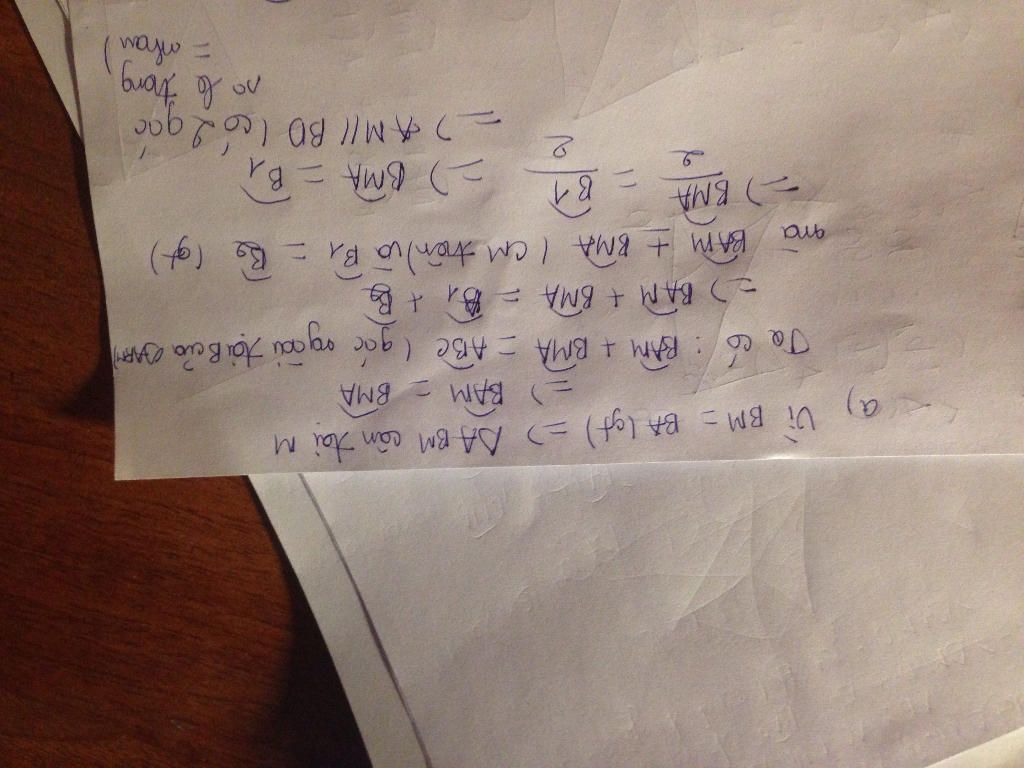 a) Vì BM = BA (gt) => ΔABM cân tại M
=> BAM = BMA
Ta có : BAM + BMA = ABC ( góc ngoài tại B của ΔABM)
=> BAM + BMA = B1 + B2
mà BAM = BMA ( CM trên) và B1 = B2 (gt)
=> BMA/2 = B1/2 => BMA = B1
=> AM // BD ( có 2 góc
so le trong
= nhau )